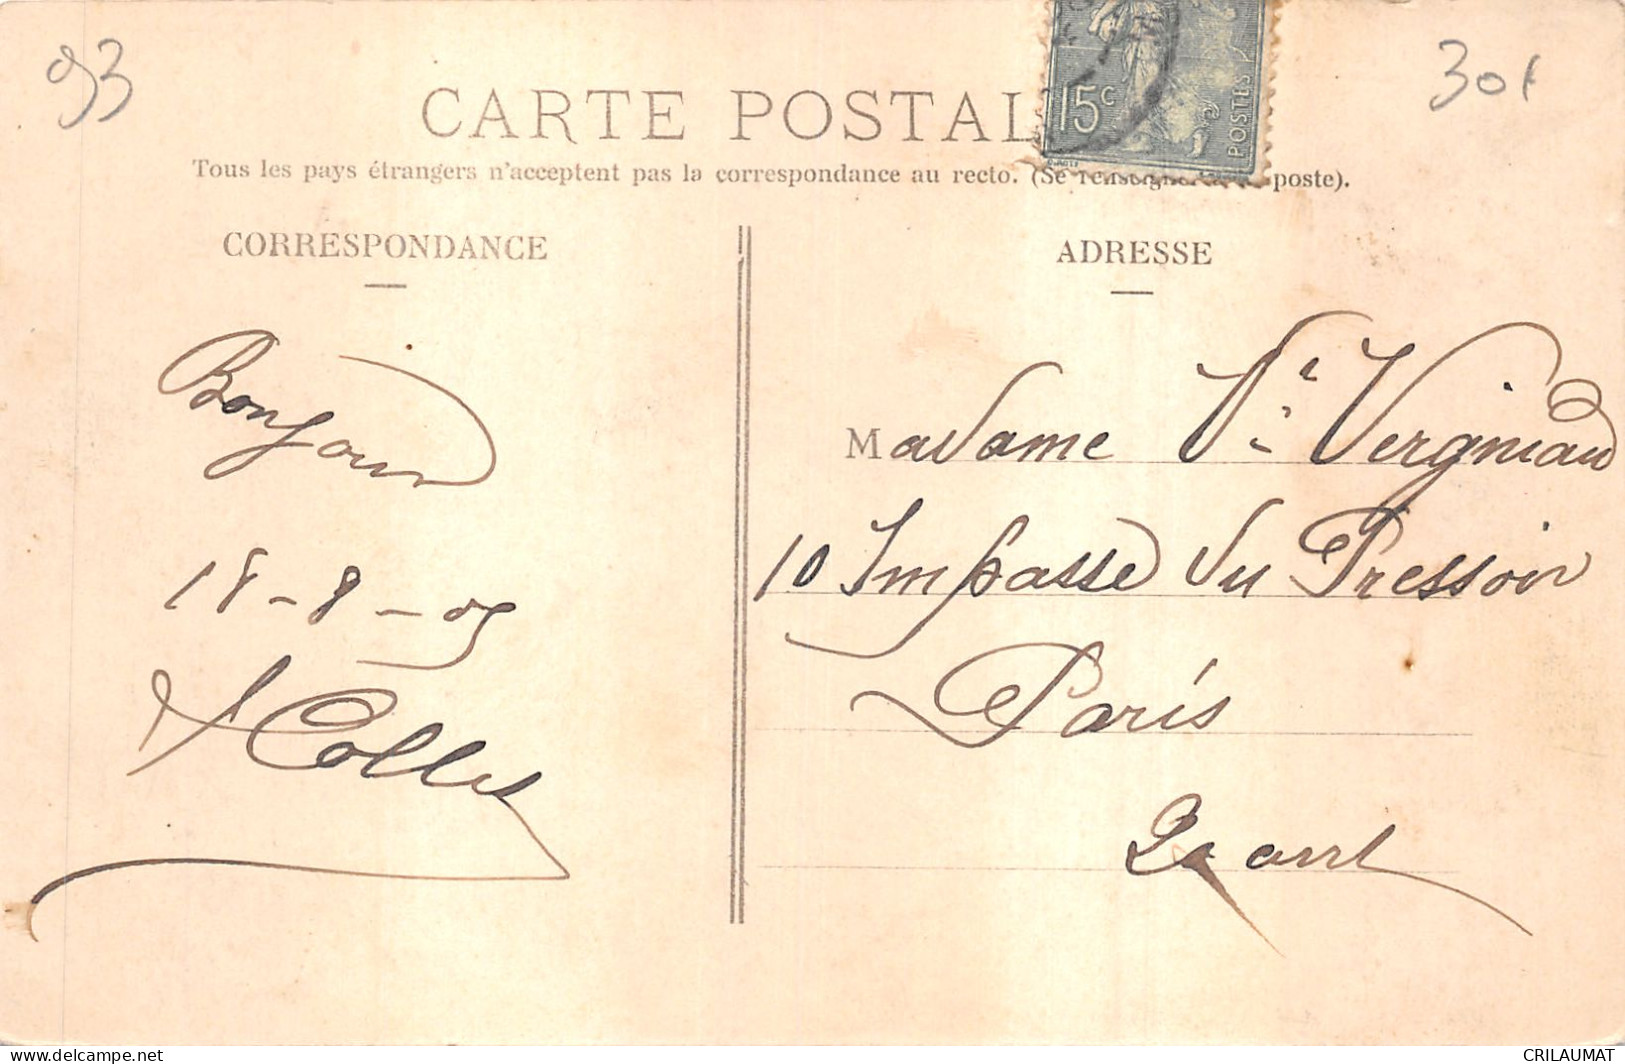 93
CARTE POSTAL
15c
POSTES
Tous les pays étrangers n'acceptent pas la correspondance au recto. (Se renseigner à la poste).
CORRESPONDANCE
ADRESSE
Bonjour
18-8-05
Collet
Madame Vve Vergniaud
10 Impasse du Pressoir
Paris
arrt
delcampe.net
CRILAUMAT